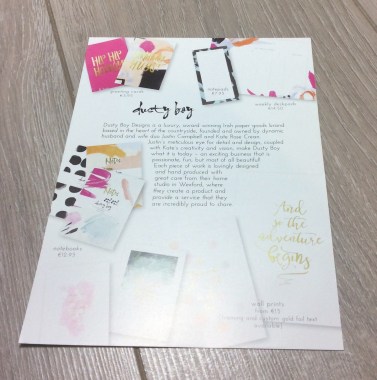 HIP HIP
greeting cards
notepads
weekly deskpads
dusty boy
Dusty Boy Designs is a luxury, award winning Irish paper goods brand
based in the heart of the countryside, founded and owned by dynamic
husband and wife duo Justin Campbell and Kate Rose Crean.
Justin's meticulous eye for detail and design, coupled
with Kate's creativity and vision, made Dusty Boy
what it is today - an exciting business that is
passionate, fun, but most of all beautiful!
Each piece of work is lovingly designed
and hand produced with
great care from their home
studio in Wexford, where
they create a product and
provide a service that they
are incredibly proud to share.
Notes
notebooks
€12.95
And
so the
adventure
begins
wall prints
from €15
and custom gold foil text
available!